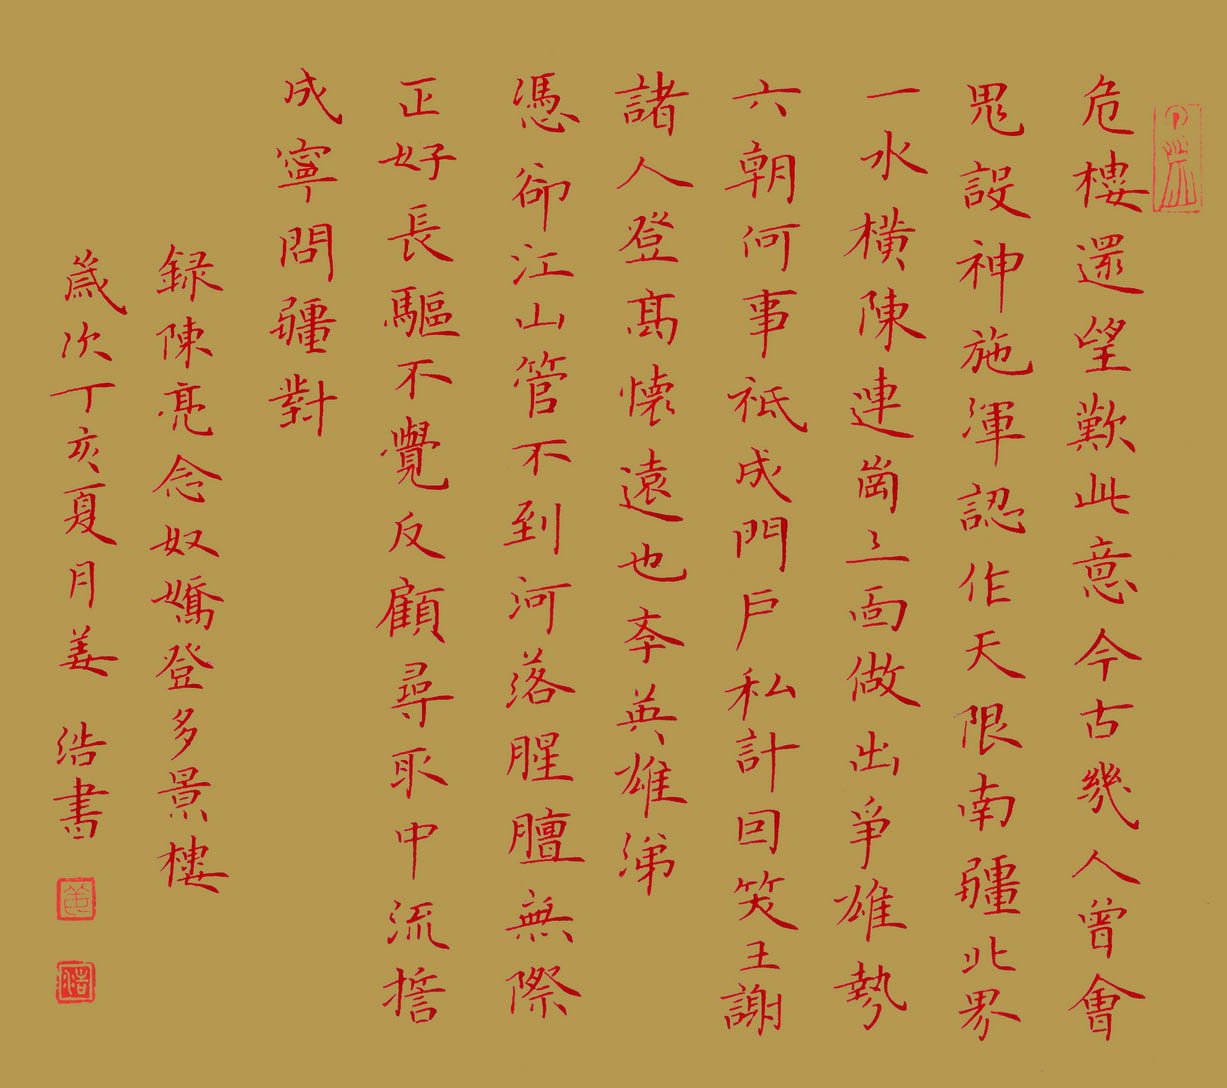 危樓還望歎此意今古幾人曾會
鬼設神施渾認作天限南疆北界
一水橫陳連崗三面做出爭雄勢
六朝何事祗成門戶私計回笑王謝
諸人登高懷遠也斈英雄涕
憑卻江山管不到河落腥膻無際
正好長驅不覺反顧尋取中流誓
成寧問疆對
録陳亮念奴嬌登多景樓
歲次丁亥夏月姜浩書